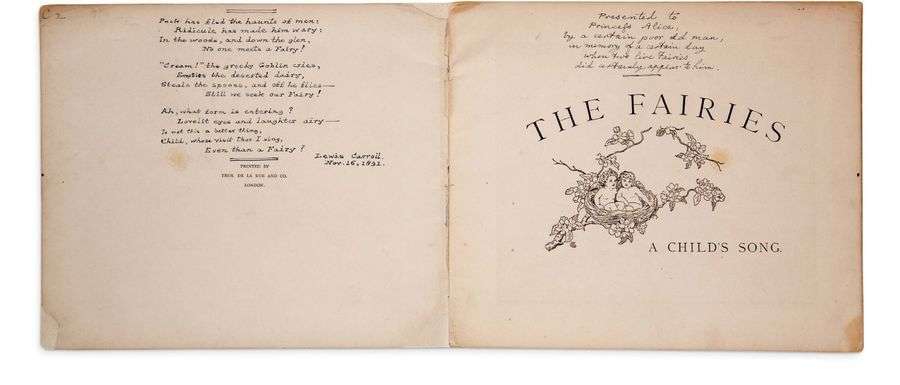 C 2
Puck has fled the haunts of men:
Ridicule has made him wary:
In the woods, and down the glen,
No one meets a Fairy!
"Cream!" the greedy Goblin cries,
Empties the deserted dairy,
Steals the spoons, and off he flies—
Still we seek our Fairy!
Ah, what form is entering?
Lovelit eyes and laughter airy—
Is not this a better thing,
Child, whose visit thus I sing,
Even than a Fairy?
Lewis Carroll.
Nov. 16, 1891.
PRINTED BY
THOS. DE LA RUE AND CO.
LONDON.
Presented to
Princess Alice,
by a certain poor old man,
in memory of a certain day
when two live Fairies
did actually appear to him.
THE FAIRIES
A CHILD'S SONG.